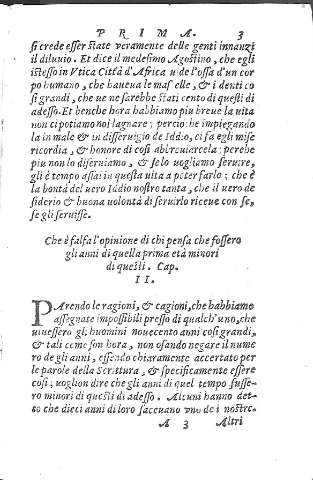 PRIMA. 3
si crede esser state veramente delle genti innanzi
il diluuio. Et dice il medesimo Agostino, che egli
istesso in Vtica Città d'Africa uide l'ossa d'un cor
po humano, che haueua le mascelle, & i denti co
si grandi, che ue ne sarebbe stati cento di questi di
adesso. Et benche hora habbiamo piu breue la uita
non ci potiamo noi lagnare; percioche impiegando
la in male & in disseruigio de Iddio, ci fa egli mise
ricordia, & honore di cosi abbreuiarcela; perche
piu non lo disseruiamo, & se lo uogliamo seruire,
gli è tempo assai in questa uita a poter farlo; che è
la bontà del uero Iddio nostro tanta, che il uero de
siderio & buona uolontà di seruirlo riceue con se,
se gli seruisse.
Che è falsa l'opinione di chi pensa che fossero
gli anni di quella prima età minori
di questi. Cap.
II.
PArendo le ragioni, & cagioni, che habbiamo
assegnate impossibili presso di qualch'uno, che
uiuessero gli huomini nouecento anni cosi grandi,
& tali come son hora, non osando negare il nume
ro de gli anni, essendo chiaramente accertato per
le parole della Scrittura, & specificamente essere
cosi; uoglion dire che gli anni di quel tempo fusse-
ro minori di questi di adesso. Alcuni hanno det-
to che dieci anni di loro faceuano uno de i nostri.
A 3 Altri